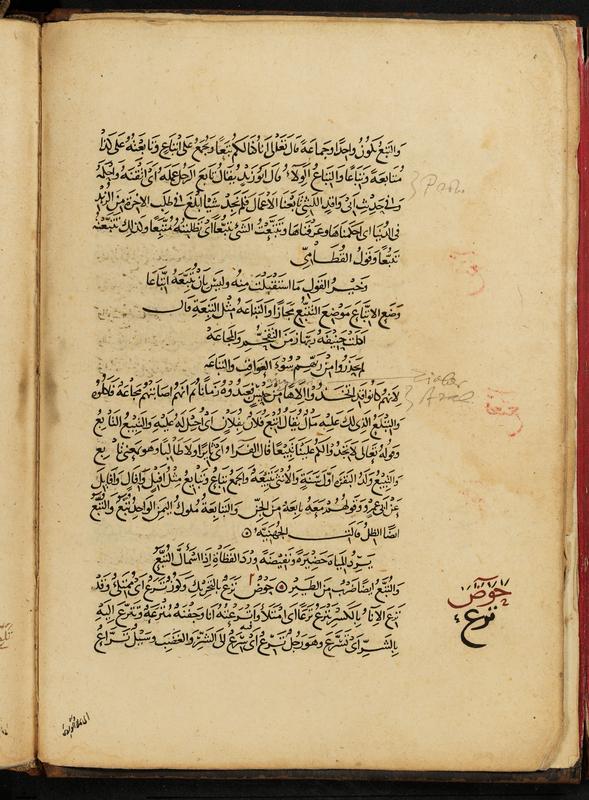 والتبع يكون واحدا وجماعة قال تعالى انا كنا لكم تبعا ويجمع على اتباع وتابعته على كذا
متابعة وتباعا والتباع الولاء قال ابو زيد يقال تابع الرجل عمله اي اتقنه واحكمه
وفي حديث ابي واقد الليثي تابعنا الاعمال فلم نجد شيئا ابلغ في طلب الاخرة من الزهد
في الدنيا اي احكمناها وعرفناها وتتبعت الشيء تتبعا اي تطلبته متتبعا وكذلك تبعته
تتبعا وقول القطامي
وخير القول ما استقبلت منه وليس بان تتبعه اتباعا
وضع الاتباع موضع التتبع مجازا والتباعة مثل التبعة قال
اكلت حنيفة ربها زمن التقحم والمجاعه
من ربهم سوء العواقب والتباعه
لانهم كانوا قد اتخذوا الاها من حيس فعبدوه زمانا ثم انهم اصابتهم مجاعة فاكلوه
عليه يقال اتبع فلان بفلان اي احيل له عليه والتبيع التابع
وقوله تعالى لا تجدوا لكم علينا به تبيعا قال الفراء اي ثائرا ولا طالبا وهو بمعنى تابع
والتبيع ولد البقرة اول سنة والانثى تبيعة والجمع تباع وتبايع مثل افيل وافال وافايل
عن ابي عمرو وقولهم معه تابعة من الجن والتبابعة ملوك اليمن الواحد تبع والتبع
ايضا الظل قالت الجهنية
يرد المياه حضيرة ونفيضة ورد القطاة اذا اسمأل التبع
والتبع ايضا ضرب من الطير حوض ترع بالتحريك وكوز ترع اي ممتلئ وقد
ترع الاناء بالكسر يترع ترعا اي امتلأ واترعته انا وجفنة مترعة وتترع اليه
بالشر اي تسرع وهو رجل ترع اي سريع الى الشر والغضب وسيل تراع
حوض
ترع